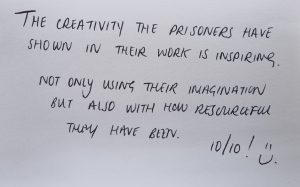 THE CREATIVITY THE PRISONERS HAVE
SHOWN IN THEIR WORK IS INSPIRING.
NOT ONLY USING THEIR IMAGINATION
BUT ALSO WITH HOW RESOURCEFUL
THEY HAVE BEEN.
10/10! :)